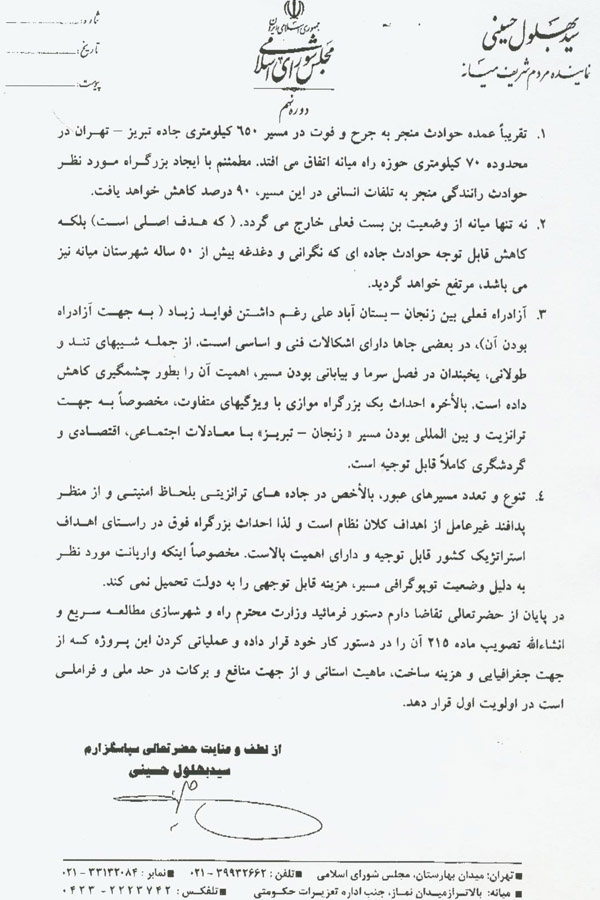 سید بهلول حسینی
نماینده مردم شریف میانه
جمهوری اسلامی ایران
مجلس شورای اسلامی
دوره نهم
شماره:
تاریخ:
پیوست:
۱. تقریباً عمده حوادث منجر به جرح و فوت در مسیر ۶۵۰ کیلومتری جاده تبریز – تهران در
محدوده ۷۰ کیلومتری حوزه راه میانه اتفاق می افتد. مطمئنم با ایجاد بزرگراه مورد نظر
حوادث رانندگی منجر به تلفات انسانی در این مسیر، ۹۰ درصد کاهش خواهد یافت.
۲. نه تنها میانه از وضعیت بن بست فعلی خارج می گردد. ( که هدف اصلی است) بلکه
کاهش قابل توجه حوادث جاده ای که نگرانی و دغدغه بیش از ۵۰ ساله شهرستان میانه نیز
می باشد، مرتفع خواهد گردید.
۳. آزادراه فعلی بین زنجان – بستان آباد علی رغم داشتن فواید زیاد ( به جهت آزادراه
بودن آن)، در بعضی جاها دارای اشکالات فنی و اساسی است. از جمله شیبهای تند و
طولانی، یخبندان در فصل سرما و بیابانی بودن مسیر، اهمیت آن را بطور چشمگیری کاهش
داده است. بالأخره احداث یک بزرگراه موازی با ویژگیهای متفاوت، مخصوصاً به جهت
ترانزیت و بین المللی بودن مسیر « زنجان – تبریز» با معادلات اجتماعی، اقتصادی و
گردشگری کاملاً قابل توجیه است.
۴. تنوع و تعدد مسیرهای عبور، بالأخص در جاده های ترانزیتی بلحاظ امنیتی و از منظر
پدافند غیرعامل از اهداف کلان نظام است و لذا احداث بزرگراه فوق در راستای اهداف
استراتژیک کشور قابل توجیه و دارای اهمیت بالاست. مخصوصاً اینکه واریانت مورد نظر
به دلیل وضعیت توپوگرافی مسیر، هزینه قابل توجهی را به دولت تحمیل نمی کند.
در پایان از حضرتعالی تقاضا دارم دستور فرمائید وزارت محترم راه و شهرسازی مطالعه سریع و
انشاءالله تصویب ماده ۲۱۵ آن را در دستور کار خود قرار داده و عملیاتی کردن این پروژه که از
جهت جغرافیایی و هزینه ساخت، ماهیت استانی و از جهت منافع و برکات در حد ملی و فراملی
است در اولویت اول قرار دهد.
از لطف و عنایت حضرتعالی سپاسگزارم
سیدبهلول حسینی
■ تهران: میدان بهارستان، مجلس شورای اسلامی ■ تلفن: ۳۹۹۳۲۶۶۲ - ۰۲۱ ■ نمابر: ۳۳۱۳۲۰۸۴ - ۰۲۱
■ میانه: بالاتر از میدان نماز، جنب اداره تعزیرات حکومتی ■ تلفکس: ۲۲۲۳۷۴۲ - ۰۴۲۳